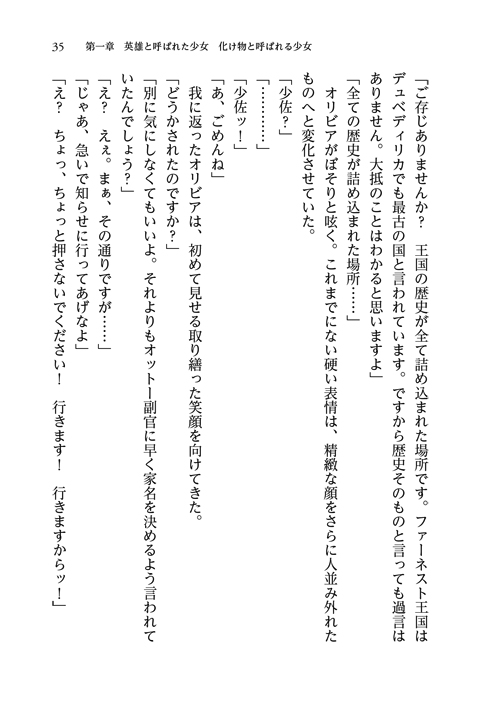 35　第一章　英雄と呼ばれた少女　化け物と呼ばれる少女
「ご存じありませんか？　王国の歴史が全て詰め込まれた場所です。ファーネスト王国は
デュベディリカでも最古の国と言われています。ですから歴史そのものと言っても過言は
ありません。大抵のことはわかると思いますよ」
「全ての歴史が詰め込まれた場所……」
　オリビアがぽそりと呟く。これまでにない硬い表情は、精緻な顔をさらに人並み外れた
ものへと変化させていた。
「少佐？」
「…………」
「少佐ッ！」
「あ、ごめんね」
　我に返ったオリビアは、初めて見せる取り繕った笑顔を向けてきた。
「どうかされたのですか？」
「別に気にしなくてもいいよ。それよりもオットー副官に早く家名を決めるよう言われて
いたんでしょう？」
「え？　えぇ。まぁ、その通りですが……」
「じゃあ、急いで知らせに行ってあげなよ」
「え？　ちょっ、ちょっと押さないでください！　行きます！　行きますからッ！」